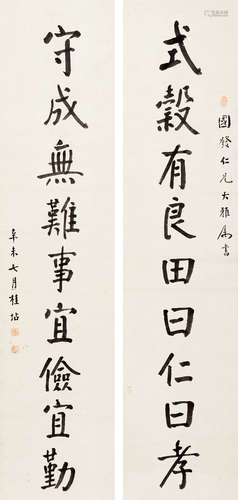 國發仁兄大雅屬書
式穀有良田曰仁曰孝
守成無難事宜儉宜勤
辛未七月桂坫